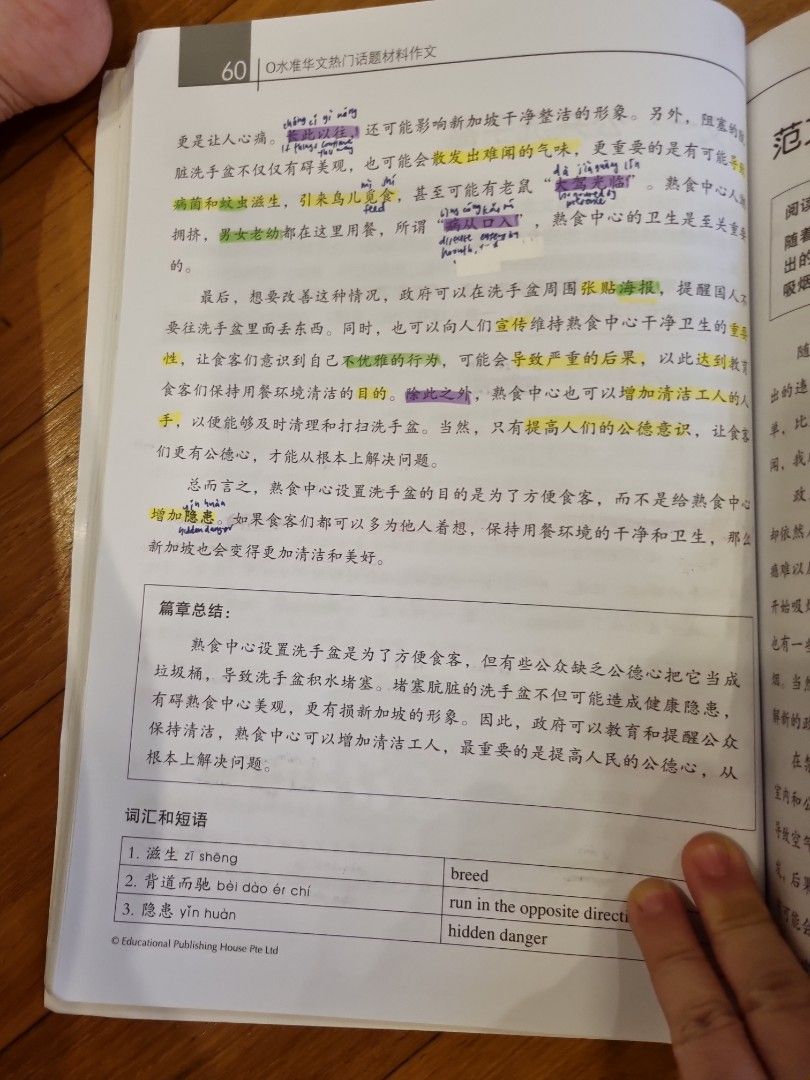 60
O水准华文热门话题材料作文
cháng cǐ yǐ wǎng
更是让人心痛。长此以往，还可能影响新加坡干净整洁的形象。另外，阻塞的
if things continue this way
脏洗手盆不仅仅有碍美观，也可能会散发出难闻的气味，更重要的是有可能导致
mì shí
dà jià guāng lín
病菌和蚊虫滋生，引来鸟儿觅食，甚至可能有老鼠“大驾光临”。熟食中心人
feed
bìng cóng kǒu rù
拥挤，男女老幼都在这里用餐，所谓“病从口入”，熟食中心的卫生是至关重要
disease enters by
的。
最后，想要改善这种情况，政府可以在洗手盆周围张贴海报，提醒国人不
要往洗手盆里面丢东西。同时，也可以向人们宣传维持熟食中心干净卫生的重要
性，让食客们意识到自己不优雅的行为，可能会导致严重的后果，以此达到教育
食客们保持用餐环境清洁的目的。除此之外，熟食中心也可以增加清洁工人的人
手，以便能够及时清理和打扫洗手盆。当然，只有提高人们的公德意识，让食客
们更有公德心，才能从根本上解决问题。
总而言之，熟食中心设置洗手盆的目的是为了方便食客，而不是给熟食中心
yǐn huàn
增加隐患。如果食客们都可以多为他人着想，保持用餐环境的干净和卫生，那么
hidden danger
新加坡也会变得更加清洁和美好。
篇章总结：
熟食中心设置洗手盆是为了方便食客，但有些公众缺乏公德心把它当成
垃圾桶，导致洗手盆积水堵塞。堵塞肮脏的洗手盆不但可能造成健康隐患，
有碍熟食中心美观，更有损新加坡的形象。因此，政府可以教育和提醒公众
保持清洁，熟食中心可以增加清洁工人，最重要的是提高人民的公德心，从
根本上解决问题。
词汇和短语
1. 滋生 zī shēng breed
2. 背道而驰 bèi dào ér chí run in the opposite directi
3. 隐患 yǐn huàn hidden danger
© Educational Publishing House Pte Ltd
范
阅读
随着
出的
吸烟
随
出的造
单，比
闻，我
政
却依然
瘾难以
开始吸
也有一些
烟。当然
解新的政
在
室内和公
导致空气
发，后果
可能会